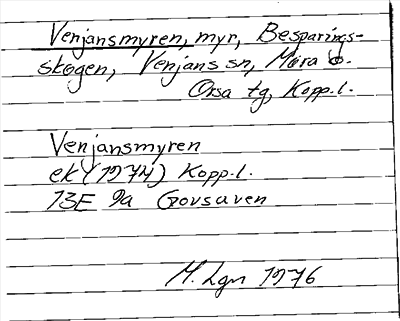 Venjansmyren, myr, Besparings-
skogen, Venjans sn, Mora o.
Orsa tg, Kopp.l.
Venjansmyren
ek (1974) Kopp.l.
13E 9a Govsaven
M. Lgn 1976